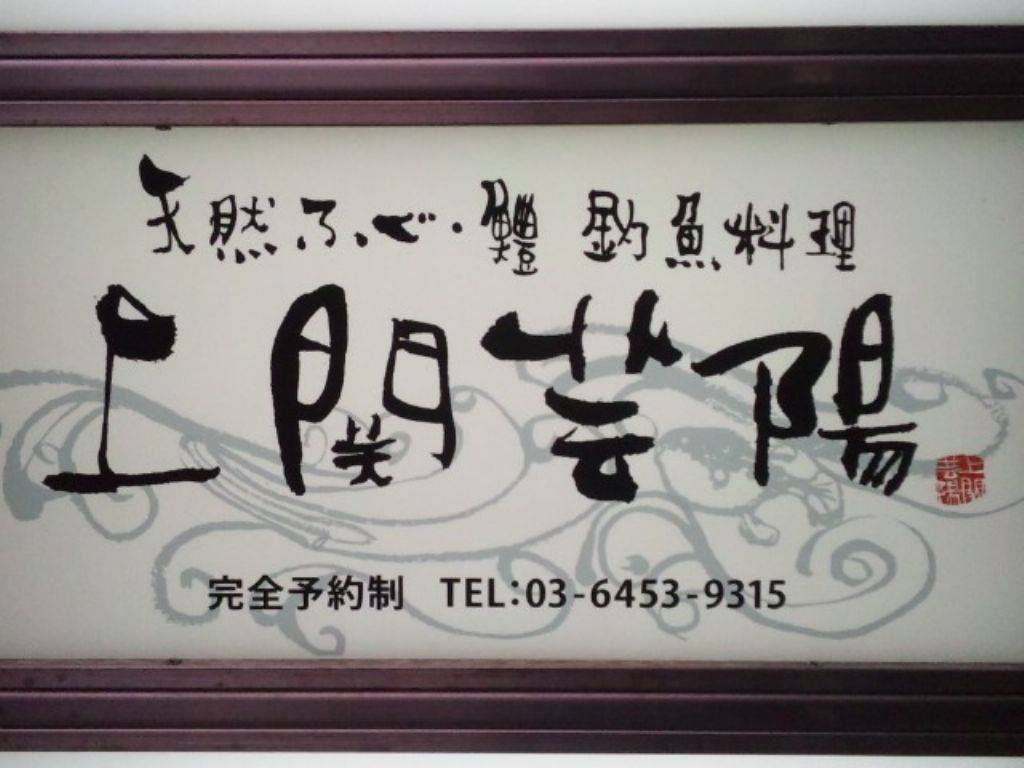 天然ふぐ・鱧 釣魚料理
上関芸陽
上関芸陽
完全予約制 TEL:03-6453-9315